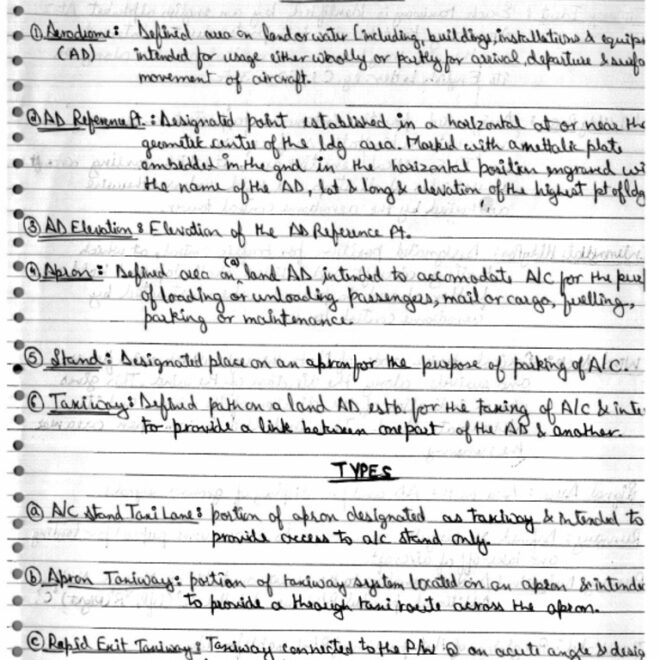 ① Aerodrome: Defined area on land or water (including, buildings, installations & equip
(AD) intended for usage either woolly or partly for arrival, departure & surfa
movement of aircraft.
② AD Reference Pt.: Designated point established in a horizontal at or near the
geometek centre of the ldg area. Marked with a mettalic plate
embedded in the gnd in the horizontal position engraved wi
the name of the AD, lat & long & elevation of the highest pt of ldg
③ AD Elevation: Elevation of the AD Reference Pt.
④ Apron: Defined area on (a) land AD intended to accomodate A/C for the pur
of loading or unloading passengers, mail or cargo, fuelling,
parking or maintenance.
⑤ Stand: Designated place on an apron for the purpose of parking of A/C.
Taxiway: Defined path on a land AD estb. for the taxing of A/C & inte
to provide a link between one part of the AD & another.
TYPES
ⓐ A/C Stand Taxi Lane: portion of apron designated as taxiway & intended to
provide access to a/c stand only.
ⓑ Apron Taxiway: portion of taxiway system located on an apron & intende
to provide a through taxi route across the apron.
ⓒ Rapid Exit Taxiway: Taxiway connected to the R/W @ an acute angle & desig